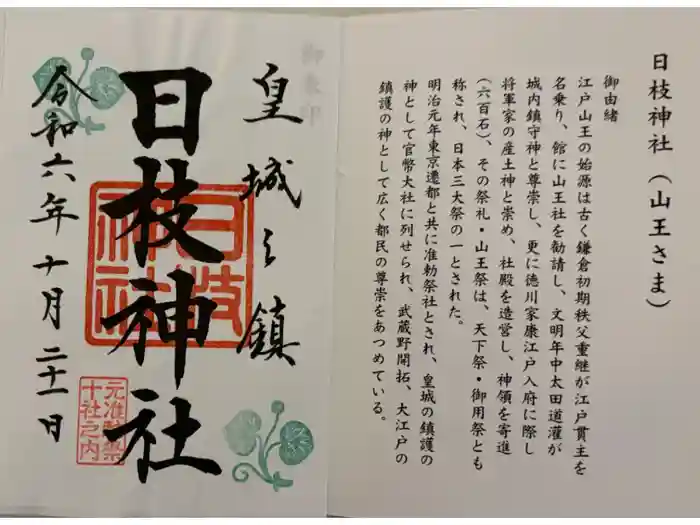 日枝神社（山王さま）
御由緒
江戸山王の始源は古く鎌倉初期秩父重継が江戸貫主を
名乗り、館に山王社を勧請し、文明年中太田道灌が
城内鎮守神と尊崇し、更に徳川家康江戸入府に際し
将軍家の産土神と崇め、社殿を造営し、神領を寄進
（六百石）、その祭礼・山王祭は、天下祭・御用祭とも
称され、日本三大祭の一とされた。
明治元年東京遷都と共に准勅祭社とされ、皇城の鎮護の
神として官幣大社に列せられ、武蔵野開拓、大江戸の
鎮護の神として広く都民の尊崇をあつめている。
皇城之鎮
日枝神社
日枝
神社
元准勅祭
十社之内
令和六年十月二十一日